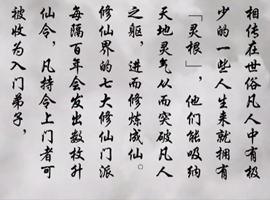 相传在世俗凡人中有极
少的一些人生来就拥有
「灵根」，他们能吸纳
天地灵气从而突破凡人
之躯，进而修炼成仙。
修仙界的七大修仙门派
每隔百年会发出数枚升
仙令，凡持令上门者可
被收为入门弟子，